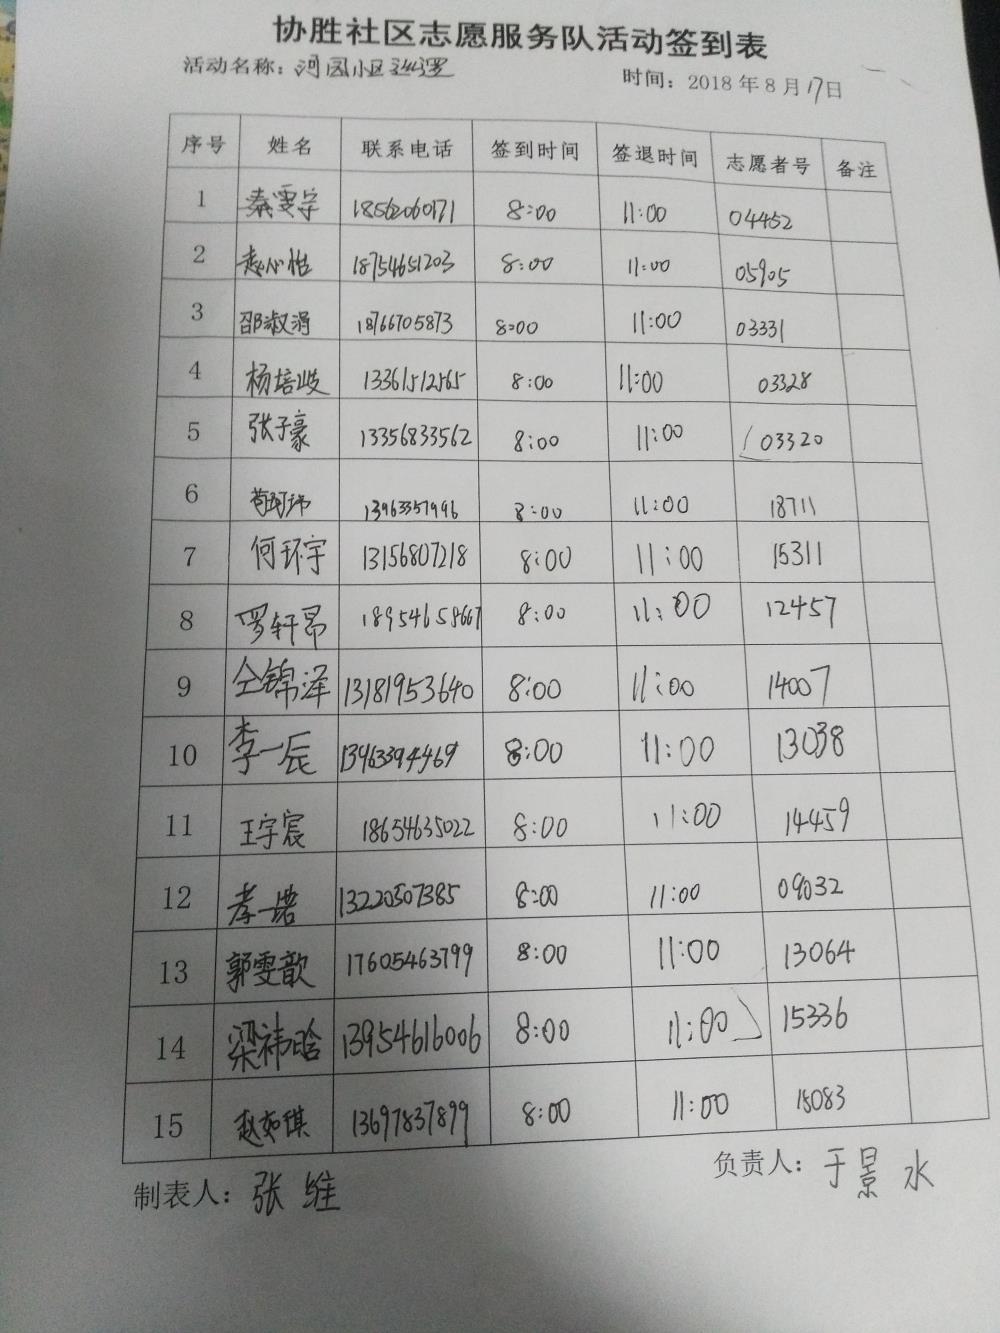 协胜社区志愿服务队活动签到表
活动名称：河园小区巡逻 时间：2018年8月17日
序号 姓名 联系电话 签到时间 签退时间 志愿者号 备注
1 秦雯宇 18562060171 8:00 11:00 04452
2 赵心怡 18754651203 8:00 11:00 05905
3 邵淑涓 18766705873 8:00 11:00 03331
4 杨培岐 13361512565 8:00 11:00 03328
5 张子豪 13356833562 8:00 11:00 03320
6 苟珂玮 13963357996 8:00 11:00 18711
7 何环宇 13156807218 8:00 11:00 15311
8 罗轩昂 18954658667 8:00 11:00 12457
9 仝锦泽 13181953640 8:00 11:00 14007
10 李一辰 13963394469 8:00 11:00 13038
11 王宇宸 18654635022 8:00 11:00 14459
12 孝一诺 13220307385 8:00 11:00 09032
13 郭雯歆 17605463799 8:00 11:00 13064
14 梁祎晗 13954616006 8:00 11:00 15336
15 赵如琪 13697837899 8:00 11:00 15083
制表人：张维 负责人：于景水